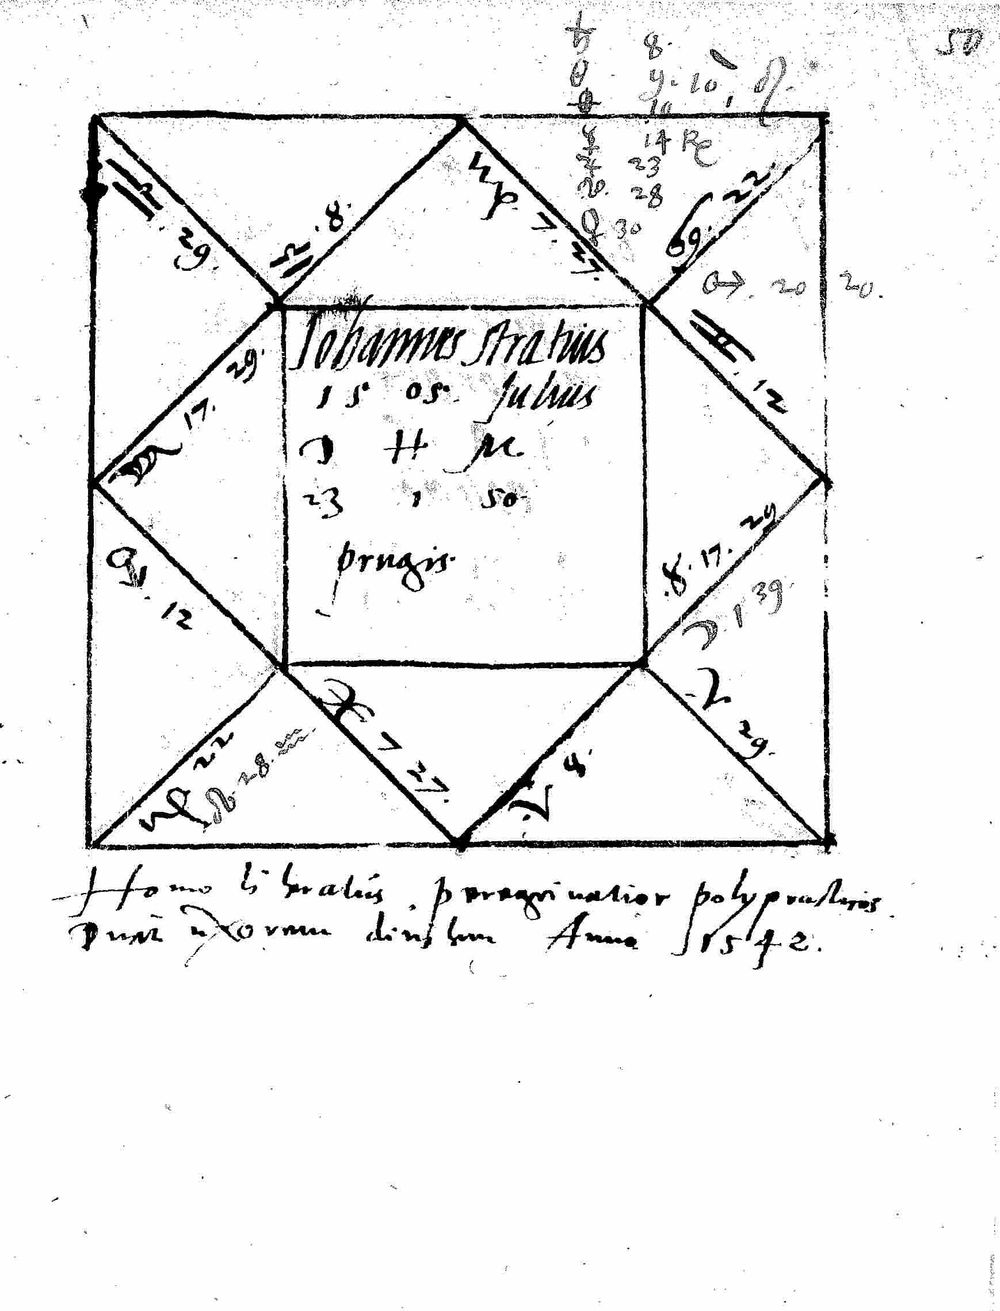 50
♄ 8.
☉ 9. 10, ♌
10
☿ 14 ℞
♃ 23
28
30
♍ 7. 27.
♋ 22.
♎ 8.
♎ 29.
☋ 20 20.
♊. 12
29.
♏ 17.
Iohannes Stratius
15 05. Julius
D H M
23 1 50
prugis.
♉. 17. 29
☽. 1 39.
♐. 12
♓ 7 27.
♈ 8.
♈ 29.
♑ 22
28.
Homo liberatus, peregrinatior polypracticus.
Duxit uxorem divitem Anno 1542.